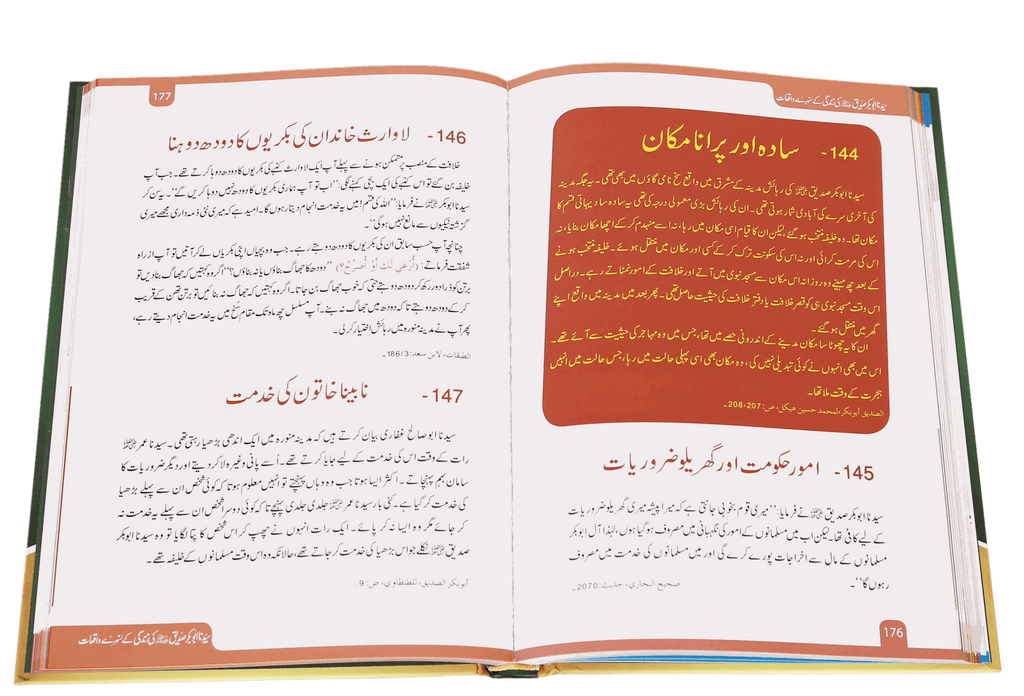 سیدنا ابوبکر صدیق ﷜ کی زندگی کے سنہرے واقعات
144- سادہ اور پرانا مکان
سیدنا ابوبکر صدیق ﷜ کی رہائش مدینہ کے مشرق میں واقع سنح نامی گاؤں میں بھی تھی۔ یہ جگہ مدینہ
کی آخری سرے کی آبادی شمار ہوتی تھی۔ ان کی رہائش بڑی معمولی درجہ کی تھی یہ سادہ سا دیہاتی قسم کا
مکان تھا۔ وہ خلیفہ منتخب ہو گئے، لیکن ان کا قیام اسی مکان میں رہا، نہ اسے منہدم کر کے اچھا مکان بنایا، نہ
اس کی مرمت کرائی اور نہ اس کی سکونت ترک کر کے کسی اور مکان میں منتقل ہوئے۔ خلیفہ منتخب ہونے
کے بعد چھ مہینے وہ روزانہ اس مکان سے مسجد نبوی میں آتے اور خلافت کے امور نمٹاتے رہے۔ دراصل
اس وقت مسجد نبوی ہی کو قصر خلافت یا دفتر خلافت کی حیثیت حاصل تھی۔ پھر بعد میں مدینہ میں واقع اپنے
گھر میں منتقل ہو گئے۔
ان کا یہ چھوٹا سا مکان مدینے کے اندرونی حصے میں تھا، جس میں وہ مہاجر کی حیثیت سے آئے تھے۔
اس میں بھی انہوں نے کوئی تبدیلی نہیں کی، وہ مکان بھی اسی پہلی حالت میں رہا، جس حالت میں انہیں
ہجرت کے وقت ملا تھا۔
الصديق أبوبكر، لمحمد حسين هيكل، ص: 207، 208.
145- امور حکومت اور گھریلو ضروریات
سیدنا ابوبکر صدیق ﷜ نے فرمایا: ”میری قوم بخوبی جانتی ہے کہ میرا پیشہ میری گھریلو ضروریات
کے لیے کافی تھا۔ لیکن اب میں مسلمانوں کے امور کی نگہبانی میں مصروف ہو گیا ہوں، لہٰذا آل ابوبکر
مسلمانوں کے مال سے اخراجات پورے کرے گی اور میں مسلمانوں کی خدمت میں مصروف
رہوں گا“۔
صحيح البخاري، حديث: 2070.
176
177
146- لاوارث خاندان کی بکریوں کا دودھ دوہنا
خلافت کے منصب پر متمکن ہونے سے پہلے آپ ایک لاوارث کنبے کی بکریوں کا دودھ دوہا کرتے تھے۔ جب آپ
خلیفہ بن گئے تو اس کنبے کی ایک بچی کہنے لگی: ”اب تو آپ ہماری بکریوں کا دودھ نہیں دوہا کریں گے“۔ یہ سن کر
سیدنا ابوبکر ﷜ نے فرمایا: ”اللہ کی قسم! میں یہ خدمت انجام دیتا رہوں گا۔ امید ہے کہ میری نئی ذمہ داری مجھے میری
گزشتہ نیکیوں سے مانع نہیں ہو گی“۔
چنانچہ آپ حسب سابق ان کی بکریوں کا دودھ دوہتے رہے۔ جب وہ بچیاں اپنی بکریاں لے کر آتیں تو آپ از راہ
شفقت فرماتے: (أُرْغِي لَكِ أَوْ أُصَرِّحُ؟) ”دودھ کا جھاگ بناؤں یا نہ بناؤں؟“ اگر وہ کہتیں کہ جھاگ بنا دیں تو
برتن کو ذرا دور رکھ کر دودھ دوہتے حتی کہ خوب جھاگ بن جاتا۔ اگر وہ کہتیں کہ جھاگ نہ بنائیں تو برتن تھن کے قریب
کر کے دودھ دوہتے تا کہ دودھ میں جھاگ نہ بنے۔ آپ مسلسل چھ ماہ تک مقام سُنح میں یہ خدمت انجام دیتے رہے،
پھر آپ نے مدینہ منورہ میں رہائش اختیار کر لی۔
الطبقات، لابن سعد: 186/3.
147- نابینا خاتون کی خدمت
سیدنا ابو صالح غفاری بیان کرتے ہیں کہ مدینہ منورہ میں ایک اندھی بڑھیا رہتی تھی۔ سیدنا عمر ﷜
رات کے وقت اس کی خدمت کے لیے جایا کرتے تھے۔ اُسے پانی وغیرہ لا کر دیتے اور دیگر ضروریات کا
سامان بہم پہنچاتے۔ اکثر ایسا ہوتا جب وہ وہاں پہنچتے تو انہیں معلوم ہوتا کہ کوئی شخص ان سے پہلے بڑھیا
کی خدمت کر گیا ہے۔ کئی بار سیدنا عمر ﷜ جلدی جلدی پہنچے تا کہ کوئی دوسرا شخص ان سے پہلے یہ خدمت نہ
کر جائے مگر وہ ایسا نہ کر پائے۔ ایک رات انہوں نے چھپ کر اس شخص کا پتا لگایا تو وہ سیدنا ابوبکر
صدیق ﷜ نکلے جو اس بڑھیا کی خدمت کر جاتے تھے، حالانکہ وہ اس وقت مسلمانوں کے خلیفہ تھے۔
أبوبكر الصديق، للطنطاوي، ص: 9.
سیدنا ابوبکر صدیق ﷜ کی زندگی کے سنہرے واقعات